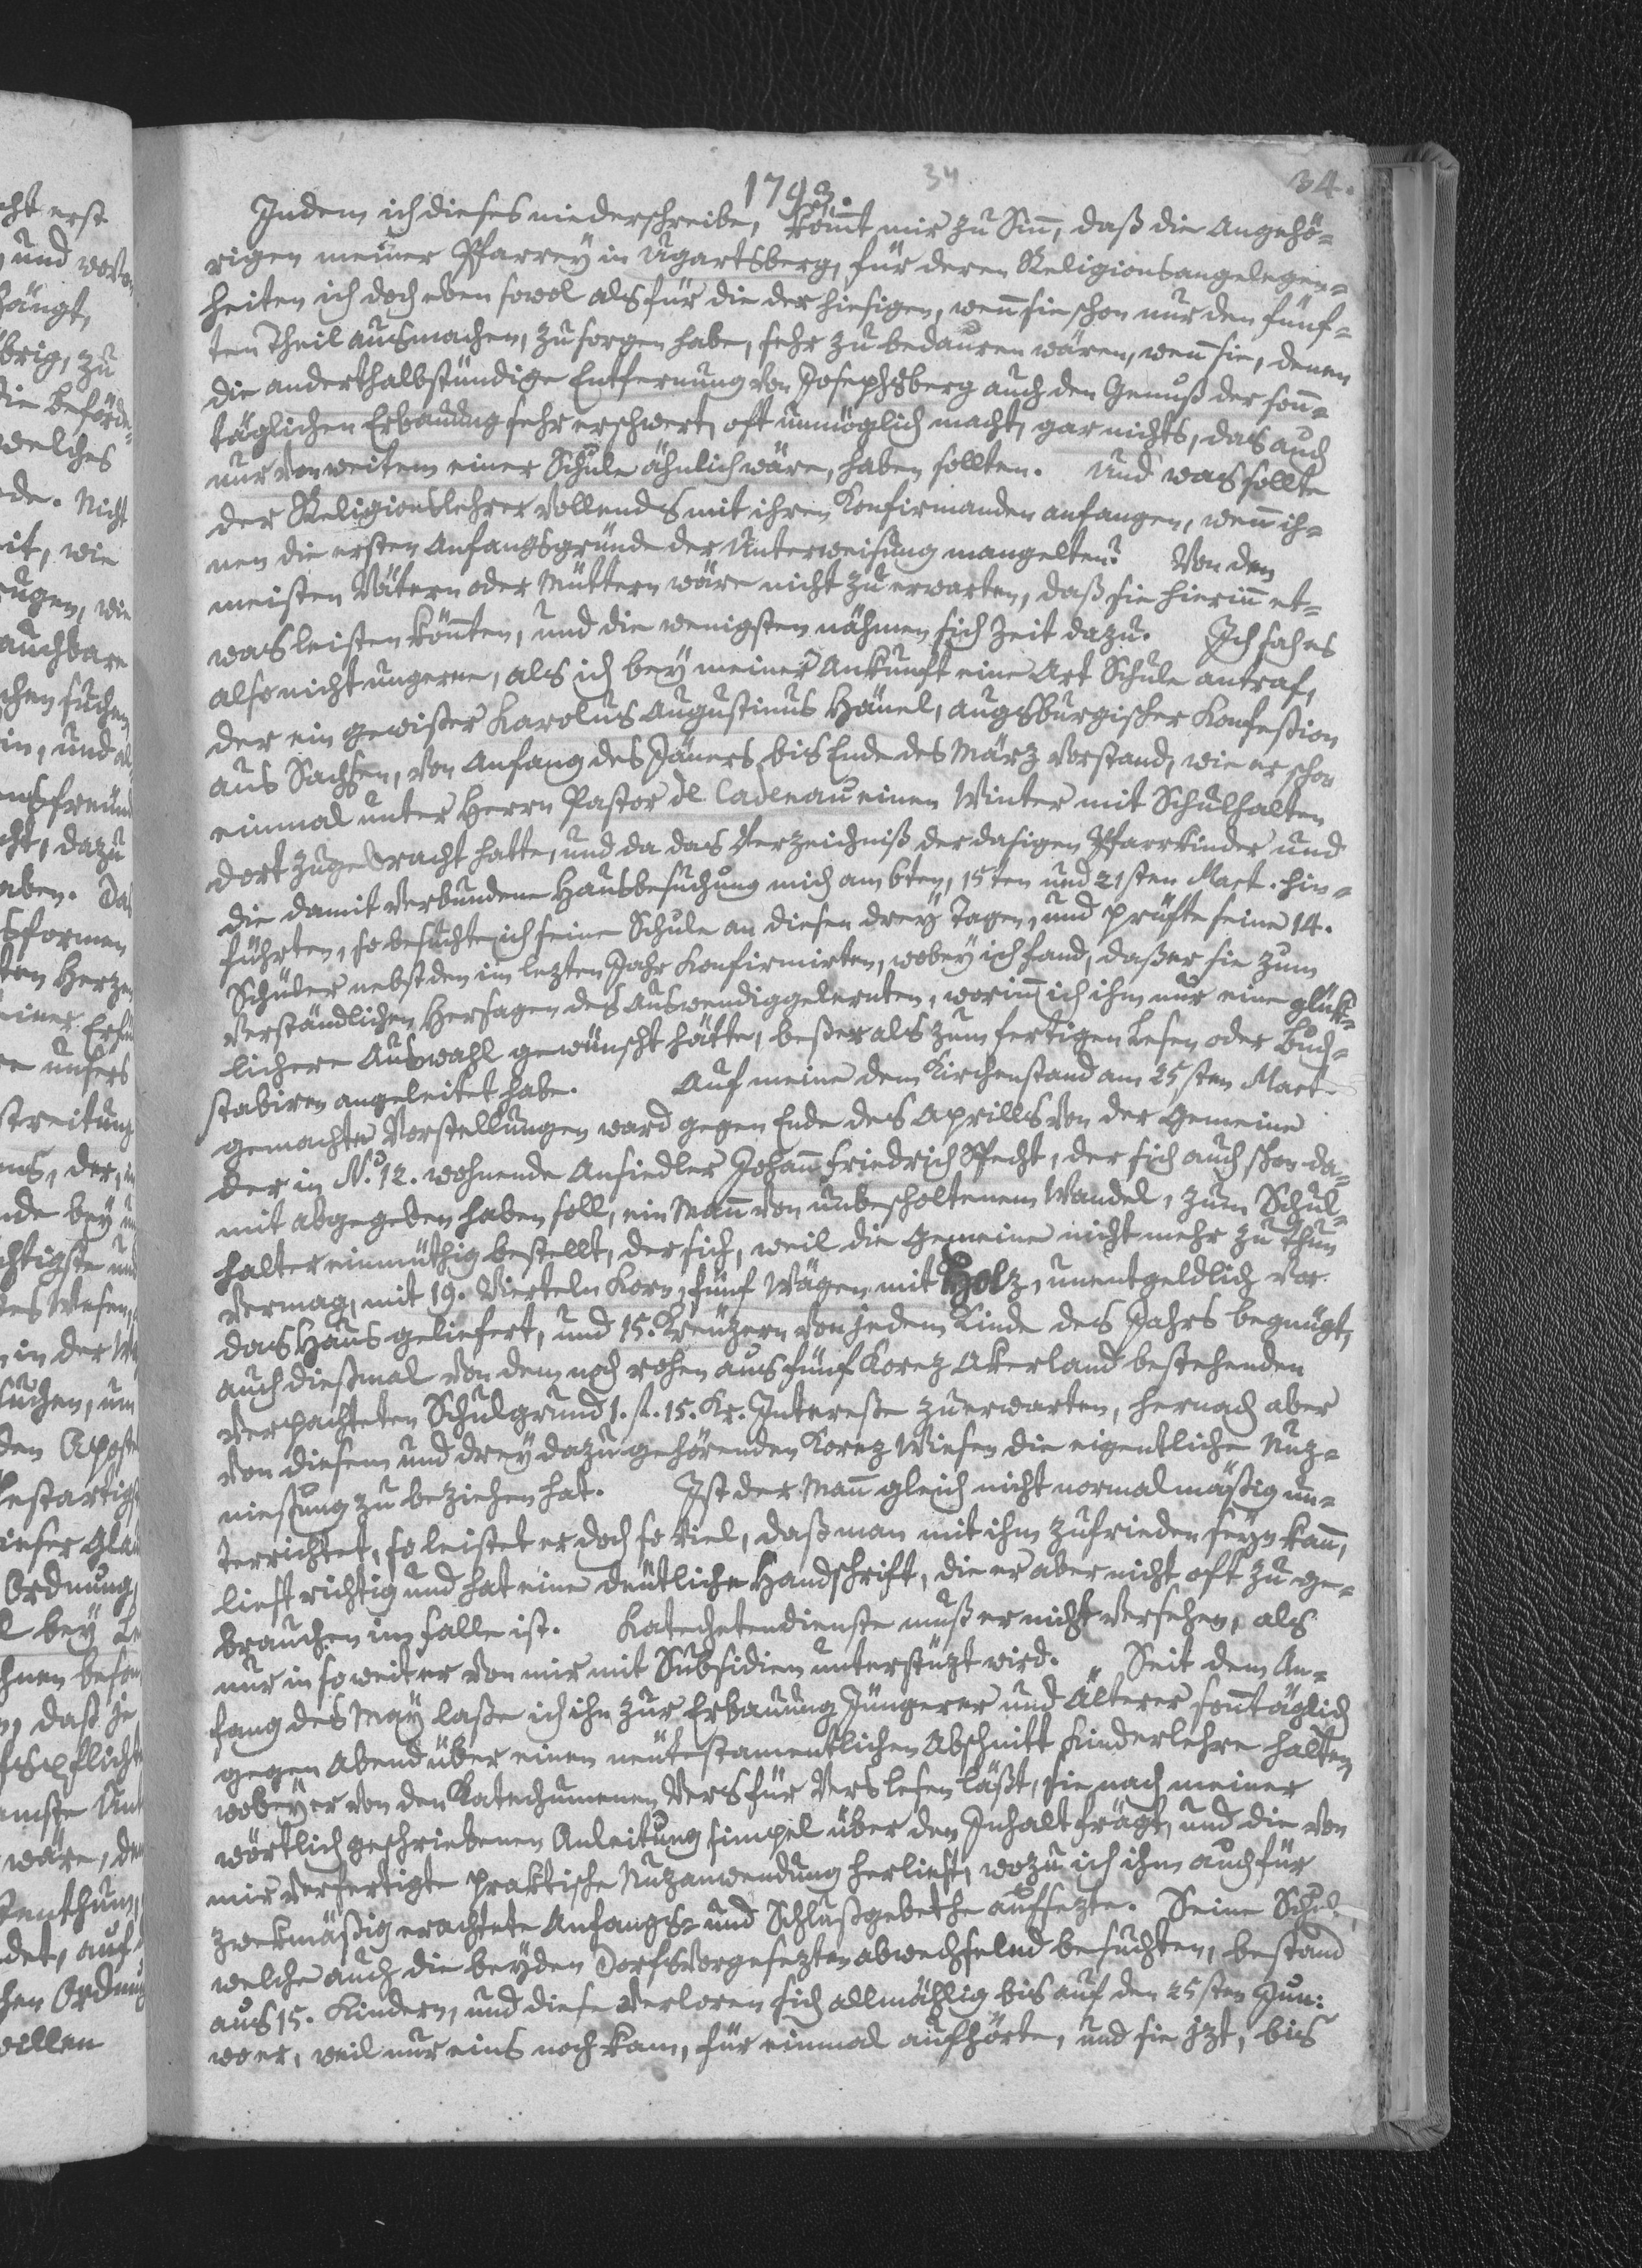 34
34.
1793.
Indem ich dieses niederschreibe, kömt mir zu Sinn, daß die Angehö=
rigen meiner Pfarrey in Ugartsberg, für deren Religionsangelegen=
heiten ich doch eben sowol als für die der hiesigen, wenn sie schon nur den fünf=
ten Theil ausmachen, zu sorgen habe, sehr zu bedauren wären, wenn sie, denen
die anderthalbstündige Entfernung von Josephsberg auch den Genuß der sonn=
täglichen Erbauung sehr erschwert, oft unmöglich macht, gar nichts, das auch
nur von weitem einer Schule ähnlich wäre, haben sollten. Und was sollte
der Religionslehrer vollends mit ihren Konfirmanden anfangen, wenn ih=
nen die ersten Anfangsgründe der Unterweisung mangelten? Von den
meisten Vätern oder Müttern wäre nicht zu erwarten, daß sie hierinn et=
was leisten könnten, und die wenigsten nähmen sich Zeit dazu. Ich sah es
also nicht ungerne, als ich bey meiner Ankunft eine Art Schule antraf,
der ein gewißer Karolus Augustinus Hänel, augsburgischer Konfeßion
aus Sachsen, von Anfang des Jäners bis Ende des März vorstand, wie er schon
einmal unter Herrn Pastor de Cadenau einen Winter mit Schulhalten
dort zugebracht hatte, und da das Verzeichniß der dasigen Pfarrkinder und
die damit verbundene Hausbesuchung mich am 6ten, 15ten und 21sten Mart. hin=
führten, so besuchte ich seine Schule an diesen drey Tagen, und prüfte seine 14.
Schüler nebst den im lezten Jahr Konfirmirten, wobey ich fand, daß er sie zum
verständlichen Hersagen des Auswendiggelernten, worinn ich ihm nur eine glük=
lichere Auswahl gewünscht hätte, beßer als zum fertigen Lesen oder Buch=
stabiren angeleitet habe. Auf meine dem Kirchenstand am 25sten Mart.
gemachte Vorstellungen ward gegen Ende des Aprills von der Gemeine
der in N.o 12. wohnende Ansiedler Johann Friedrich Specht, der sich auch schon da=
mit abgegeben haben soll, ein Mann von unbescholtenem Wandel, zum Schul=
halter einmüthig bestellt, der sich, weil die Gemeine nicht mehr zu thun
vermag, mit 19. Vierteln Korn, fünf Wägen mit Holz, unentgeldlich vor
das Haus geliefert, und 15. Kreuzern von jedem Kinde des Jahrs begnügt,
auch dießmal von dem noch rohen aus fünf Korez Akerland bestehenden
verpachteten Schulgrund 1. fl. 15. Kr. Intereße zu erwarten, hernach aber
von diesem und drey dazu gehörenden Korez Wiesen die eigentliche Nuz=
nießung zu beziehen hat. Ist der Mann gleich nicht normalmäßig un=
terrichtet, so leistet er doch so viel, daß man mit ihm zufrieden seyn kann,
liest richtig und hat eine deutliche Handschrift, die er aber nicht oft zu ge=
brauchen im Falle ist. Katechetendienste muß er nicht versehen, als
nur in so weit er von mir mit Subsidien unterstüzt wird. Seit dem An=
fang des May laße ich ihn zur Erbauung Jüngerer und Älterer sonntäglich
gegen Abend über einen neutestamentlichen Abschnitt Kinderlehre halten,
wobey er von den Katechumenen Vers für Vers lesen läßt, sie nach meiner
wörtlich geschriebenen Anleitung simpel über den Inhalt frägt, und die von
mir verfertigte praktische Nuzanwendung herliest, wozu ich ihm auch für
zwekmäßig erachtete Anfangs= und Schlußgebethe aufsezte. Seine Schule,
welche auch die beyden Dorfsvorgesezten abwechselnd besuchten, bestand
aus 15. Kindern, und diese verloren sich allmählig bis auf den 25sten Jun:
wo er, weil nur eins noch kam, für einmal aufhörte, und sie jzt, bis